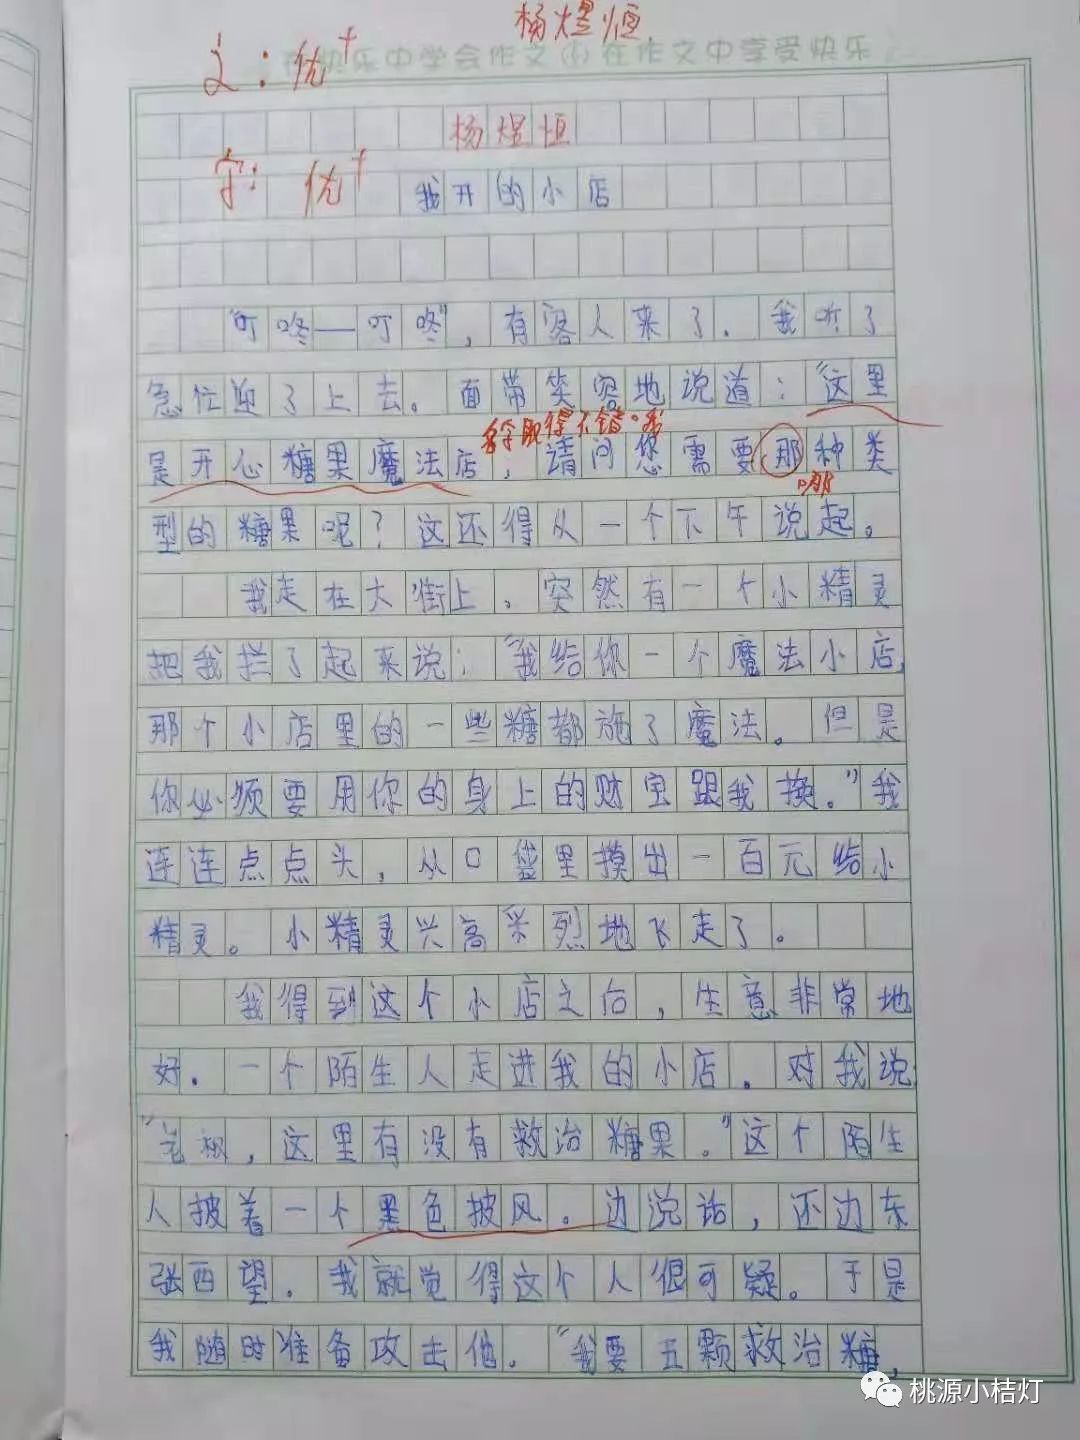 杨煜恒
文：优+
在快乐中学会作文 在作文中享受快乐
杨煜恒
字：优+
我开的小店
“叮咚——叮咚”，有客人来了．我听了
急忙迎了上去。面带笑容地说道：“这里
名字取得不错。
是开心糖果魔法店，请问您需要那种类
哪
型的糖果呢？这还得从一个下午说起。
我走在大街上．突然有一个小精灵
把我拦了起来说：“我给你一个魔法小店，
那个小店里的一些糖都施了魔法。但是
你必须要用你的身上的财宝跟我换．”我
连连点点头，从口袋里摸出一百元给小
精灵。小精灵兴高采烈地飞走了．
我得到这个小店之后，生意非常地
好．一个陌生人走进我的小店．对我说：
“老板，这里有没有救治糖果．”这个陌生
人披着一个黑色披风。边说话，还边东
张西望．我就觉得这个人很可疑。于是
我随时准备攻击他．“我要五颗救治糖，
桃源小桔灯